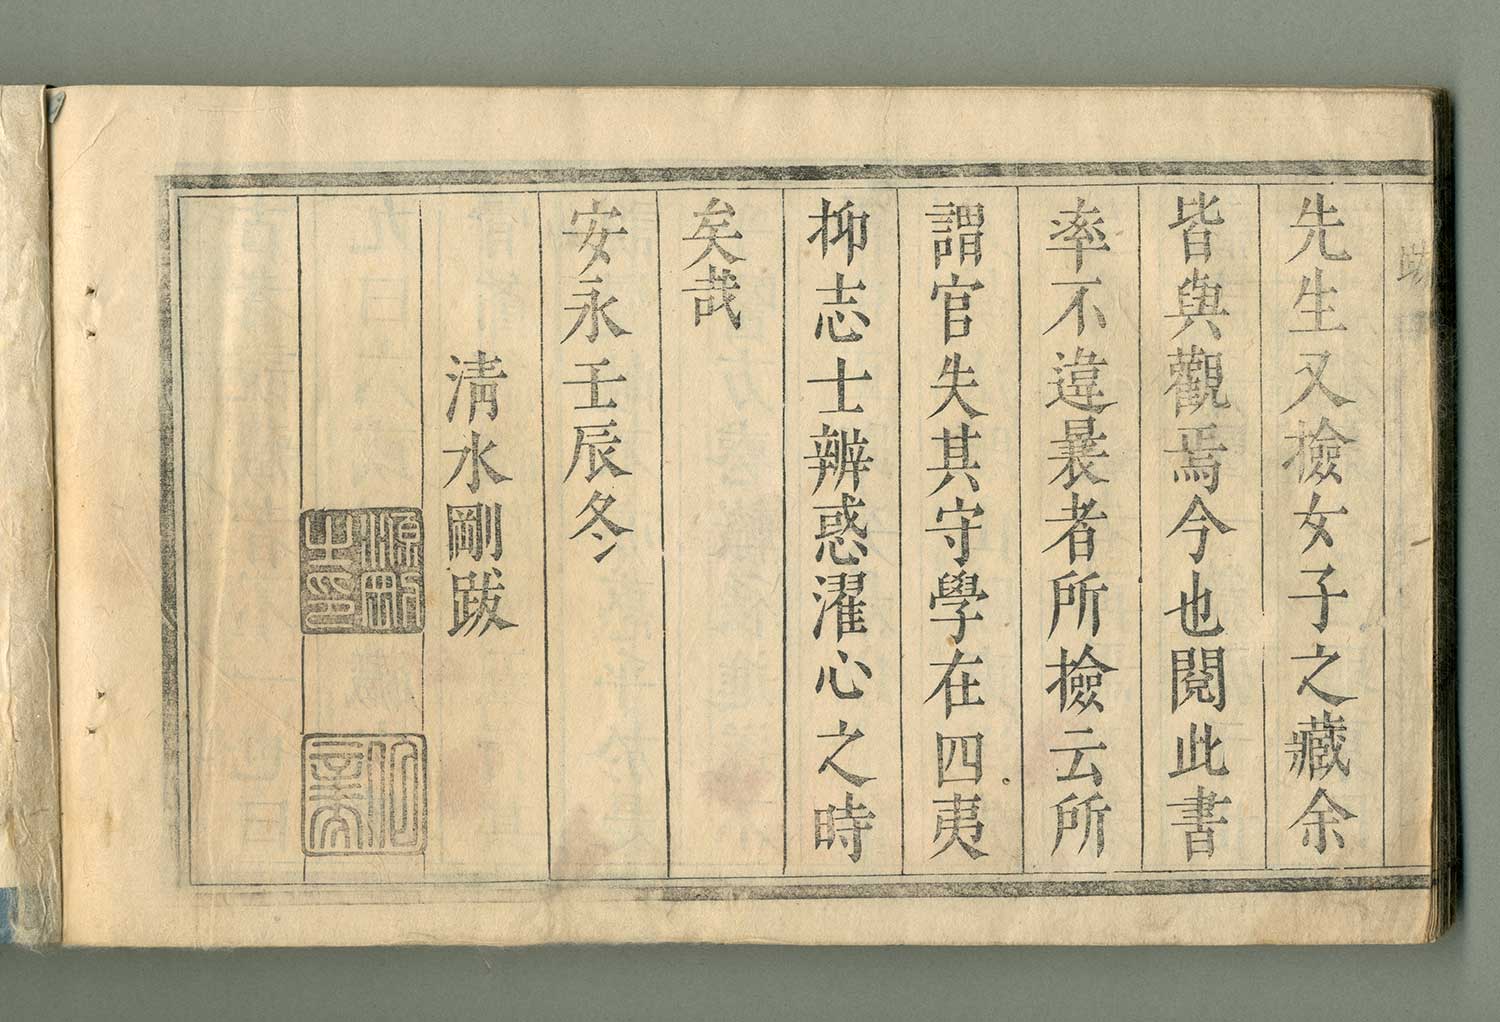 跋
先生又撿女子之藏余
皆與觀焉今也閱此書
率不違曩者所撿云所
謂官失其守學在四夷
抑志士辨惑濯心之時
矣哉
安永壬辰冬
清水剛跋